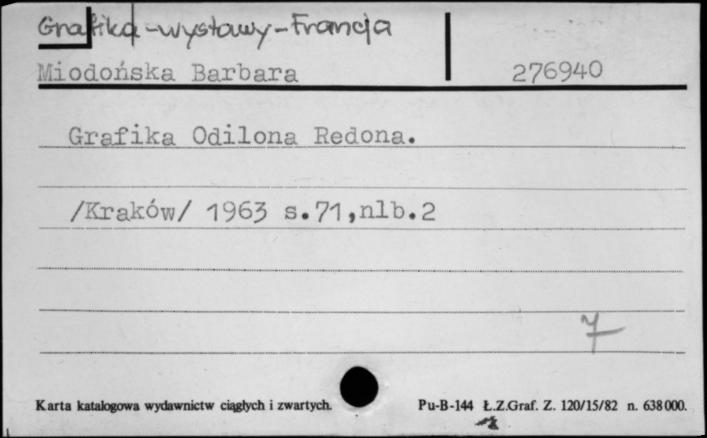 Grafika-wystawy-Francja
Miodońska Barbara 276940
Grafika Odilona Redona.
/Kraków/ 1963 s.71,nlb.2
7
Karta katalogowa wydawnictw ciągłych i zwartych. Pu-B-144 Ł.Z.Graf. Z. 120/15/82 n. 638000.